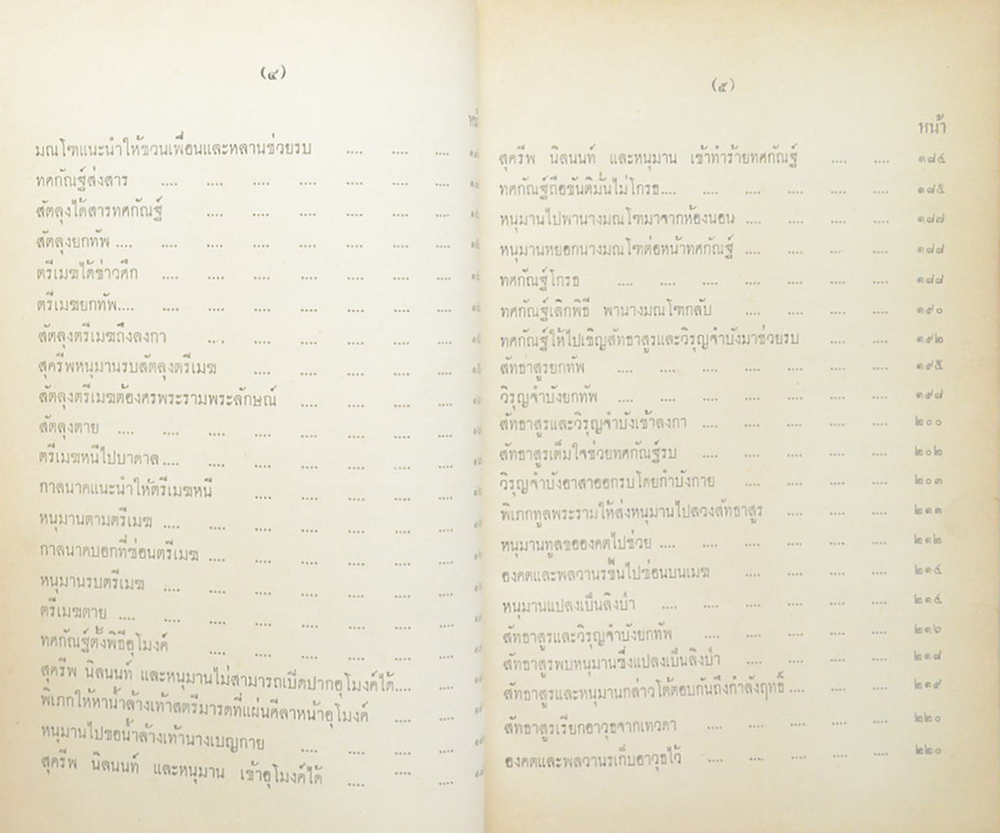 (๔)
มณโฑแนะนำให้ชวนเพื่อนและหลานช่วยรบ .... .... ....
ทศกัณฐ์ส่งสาร .... .... .... .... .... .... ....
สัตลุงได้สารทศกัณฐ์ .... .... .... .... .... ....
สัตลุงยกทัพ .... .... .... .... .... .... .... ....
ตรีเมฆได้ข่าวศึก .... .... .... .... .... .... ....
ตรีเมฆยกทัพ.... .... .... .... .... .... .... ....
สัตลุงตรีเมฆถึงลงกา .... .... .... .... .... ....
สุครีพหนุมานรบสัตลุงตรีเมฆ .... .... .... .... ....
สัตลุงตรีเมฆต้องศรพระรามพระลักษณ์ .... .... .... ....
สัตลุงตาย .... .... .... .... .... .... .... ....
ตรีเมฆหนีไปบาดาล.... .... .... .... .... .... ....
กาลนาคแนะนำให้ตรีเมฆหนี .... .... .... .... ....
หนุมานตามตรีเมฆ .... .... .... .... .... .... ....
กาลนาคบอกที่ซ่อนตรีเมฆ .... .... .... .... .... ....
หนุมานรบตรีเมฆ .... .... .... .... .... .... ....
ตรีเมฆตาย .... .... .... .... .... .... .... ....
ทศกัณฐ์ตั้งพิธีอุโมงค์ .... .... .... .... .... ....
สุครีพ นิลนนท์ และหนุมานไม่สามารถเปิดปากอุโมงค์ได้.... ....
พิเภกให้หาน้ำล้างเท้าสตรีมารดที่แผ่นศิลาหน้าอุโมงค์ .... ....
หนุมานไปขอน้ำล้างเท้านางเบญกาย .... .... .... ....
สุครีพ นิลนนท์ และหนุมาน เข้าอุโมงค์ได้ .... .... ....
(๕)
หน้า
สุครีพ นิลนนท์ และหนุมาน เข้าทำร้ายทศกัณฐ์ .... .... ๑๘๔
ทศกัณฐ์ถือขันติมั่นไม่โกรธ.... .... .... .... .... .... ๑๘๕
หนุมานไปพานางมณโฑมาจากห้องนอน .... .... .... .... ๑๘๗
หนุมานหยอกนางมณโฑต่อหน้าทศกัณฐ์ .... .... .... .... ๑๘๘
ทศกัณฐ์โกรธ .... .... .... .... .... .... .... ๑๘๘
ทศกัณฐ์เลิกพิธี พานางมณโฑกลับ .... .... .... .... ๑๙๐
ทศกัณฐ์ให้ไปเชิญสัทธาสูรและวิรุญจำบังมาช่วยรบ .... .... ๑๙๒
สัทธาสูรยกทัพ .... .... .... .... .... .... .... ๑๙๕
วิรุญจำบังยกทัพ .... .... .... .... .... .... .... ๑๙๘
สัทธาสูรและวิรุญจำบังเข้าลงกา .... .... .... .... .... ๒๐๐
สัทธาสูรเต็มใจช่วยทศกัณฐ์รบ .... .... .... .... .... ๒๐๒
วิรุญจำบังอาสาออกรบโดยกำบังกาย .... .... .... .... ๒๐๓
พิเภกทูลพระรามให้ส่งหนุมานไปลวงสัทธาสูร .... .... .... ๒๑๑
หนุมานทูลขอองคตไปช่วย .... .... .... .... .... .... ๒๑๒
องคตและพลวานรขึ้นไปซ่อนบนเมฆ .... .... .... .... ๒๑๔
หนุมานแปลงเป็นลิงป่า .... .... .... .... .... .... ๒๑๔
สัทธาสูรและวิรุญจำบังยกทัพ .... .... .... .... .... ๒๑๖
สัทธาสูรพบหนุมานซึ่งแปลงเป็นลิงป่า .... .... .... .... ๒๑๘
สัทธาสูรและหนุมานกล่าวโต้ตอบกันถึงกำลังฤทธิ์.... .... .... ๒๑๙
สัทธาสูรเรียกอาวุธจากเทวดา .... .... .... .... .... ๒๒๐
องคตและพลวานรเก็บอาวุธไว้ .... .... .... .... .... ๒๒๐